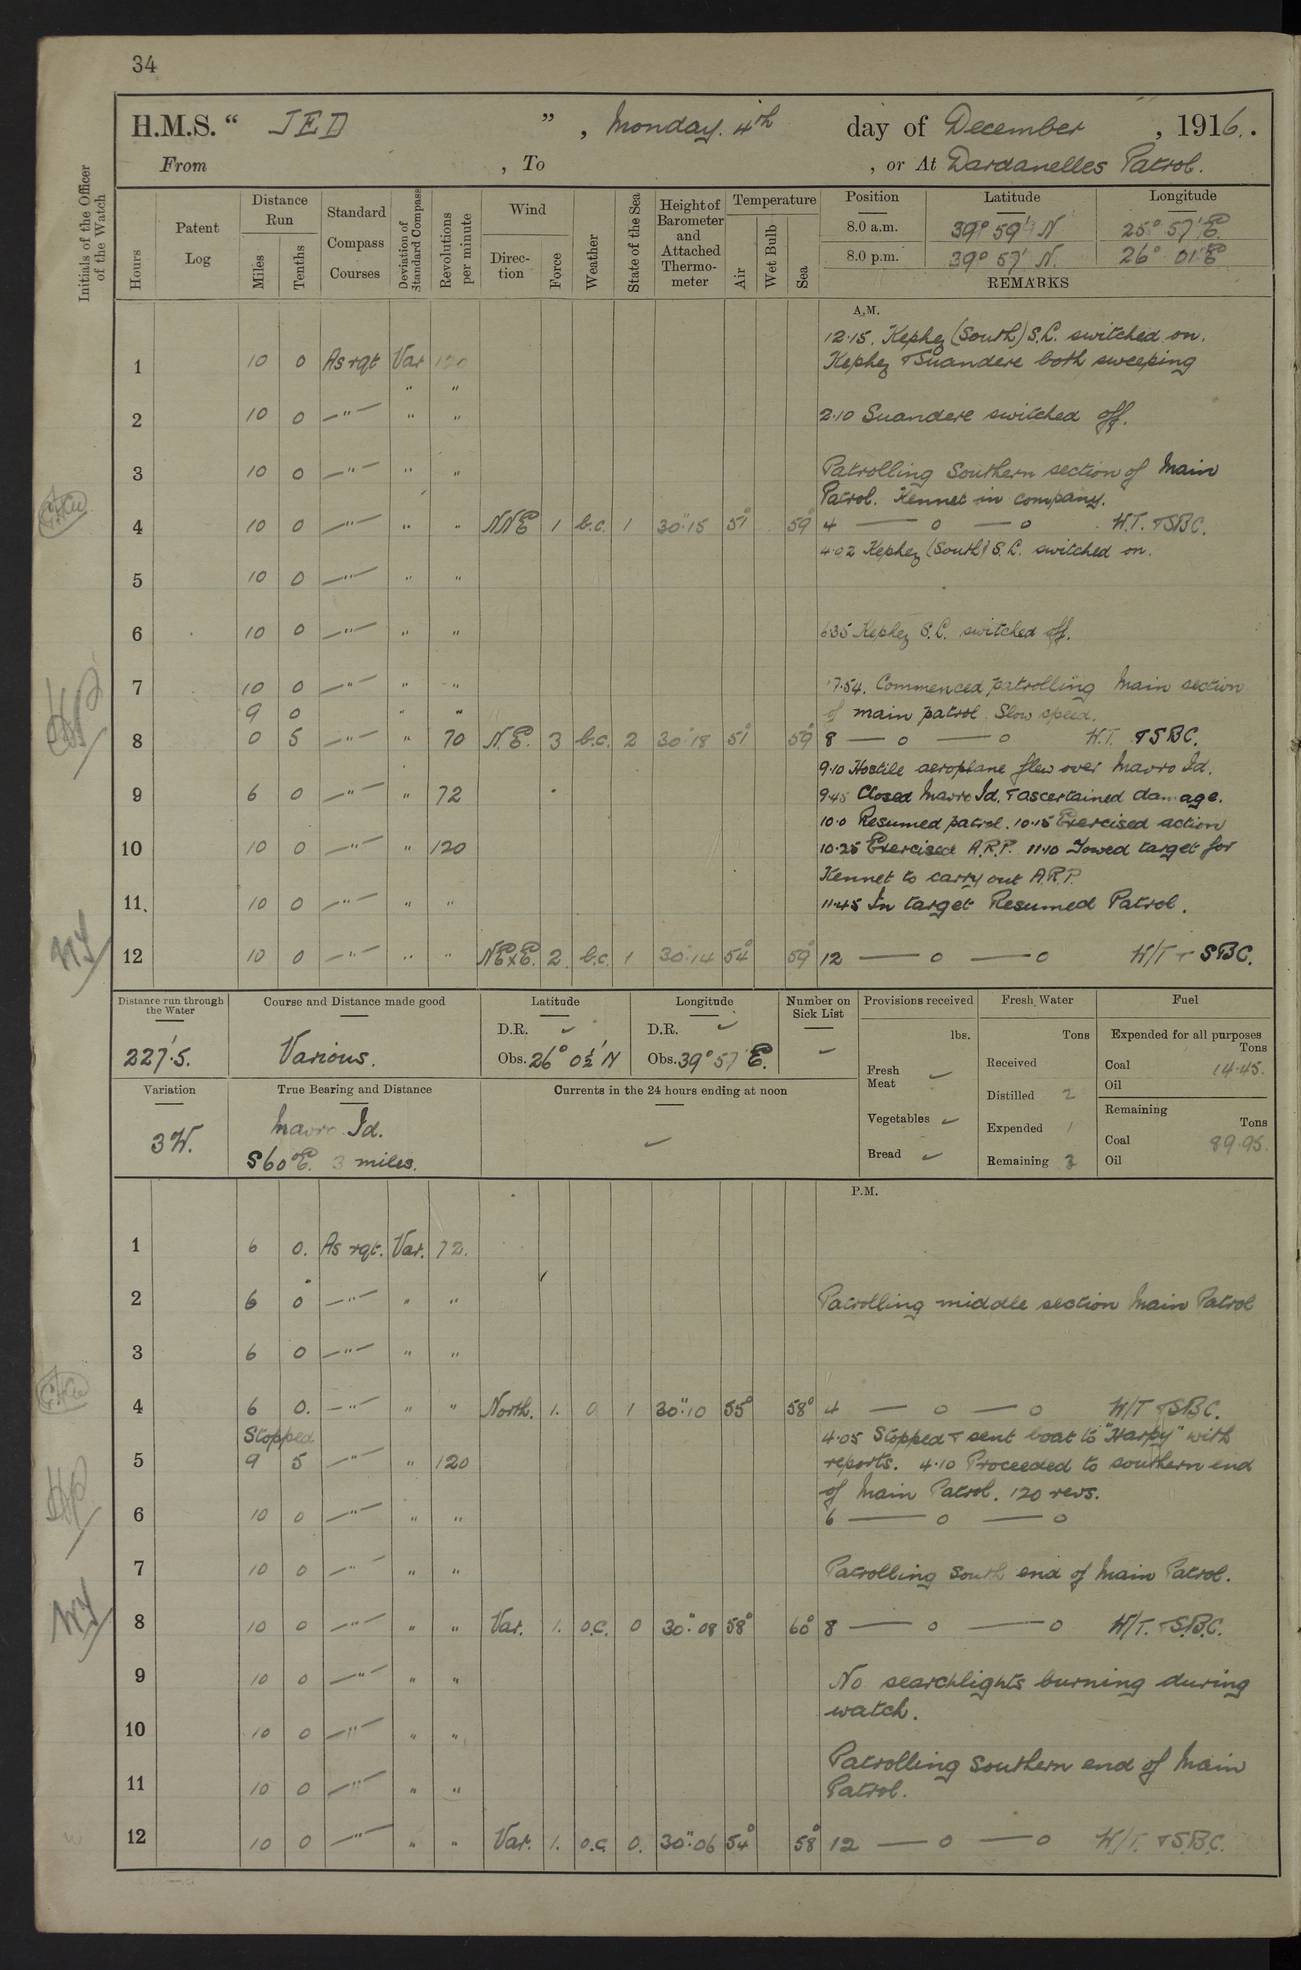 34
H.M.S. " JED ", Monday. 4th day of December, 1916.
From , To , or At Dardanelles Patrol.
Initials of the Officer of the Watch
Hours
Patent Log
Distance Run
Miles
Tenths
Standard Compass Courses
Deviation of Standard Compass
Revolutions per minute
Wind
Direction
Force
Weather
State of the Sea
Height of Barometer and Attached Thermometer
Temperature
Air
Wet Bulb
Sea
Position Latitude Longitude
8.0 a.m. 39° 59' N 25° 57' E.
8.0 p.m. 39° 57' N. 26° 01' E
REMARKS
A.M.
12.15. Kephez (South) S.L. switched on.
1 10 0 As rqt Var Kephez & Suandere both sweeping
" "
2 10 0 —"— " " 2.10 Suandere switched off.
3 10 0 —"— " " Patrolling Southern section of Main
Patrol. Kennet in company.
4 10 0 —"— " " NNE 1 b.c. 1 30".15 51° 59° 4 — o — o W.T. & SBC.
4.02 Kephez (South) S.L. switched on.
5 10 0 —"— " "
6 10 0 —"— " " 6.35 Kephez S.L. switched off.
7 10 0 —"— " " 7.54. Commenced patrolling Main section
9 0 " " of main patrol. Slow speed.
8 0 5 —"— " 70 N.E. 3 b.c. 2 30.18 51° 59° 8 — o — o W.T. & SBC.
9.10 Hostile aeroplane flew over Mavro Id.
9 6 0 —"— " 72 9.45 Closed Mavro Id. & ascertained damage.
10.0 Resumed patrol. 10.15 Exercised action
10 10 0 —"— " 120 10.25 Exercised A.R.P. 11.10 Towed target for
Kennet to carry out A.R.P.
11. 10 0 —"— " " 11.45 In target Resumed Patrol.
12 10 0 —"— " " NExE. 2 b.c. 1 30.14 54° 59° 12 — o — o W/T & SBC.
Distance run through the Water
227'.5.
Course and Distance made good
Various.
Latitude
D.R. ✓
Obs. 26° 0½' N
Longitude
D.R. ✓
Obs. 39° 57' E.
Number on Sick List
Provisions received
lbs.
Fresh Meat ✓
Vegetables ✓
Bread ✓
Fresh Water
Tons
Received
Distilled 2
Expended 1
Remaining 3
Fuel
Expended for all purposes
Tons
Coal 14.45.
Oil
Remaining
Tons
Coal 89.95.
Oil
Variation
3 W.
True Bearing and Distance
Mavro Id.
S60°E. 3 miles.
Currents in the 24 hours ending at noon
✓
P.M.
1 6 0. As rqt. Var. 72.
2 6 0 —"— " " Patrolling middle section Main Patrol
3 6 0 —"— " "
4 6 0. —"— " " North. 1. 0 1 30".10 55° 58° 4 — o — o W/T & SBC.
Stopped 4.05 Stopped & sent boat to "Harpy" with
5 9 5 —"— " 120 reports. 4.10 Proceeded to southern end
of Main Patrol. 120 revs.
6 10 0 —"— " " 6 — o — o
7 10 0 —"— " " Patrolling South end of Main Patrol.
8 10 0 —"— " " Var. 1. o.c. 0 30".08 58° 60° 8 — o — o W/T. & S.B.C.
9 10 0 —"— " " No searchlights burning during
watch.
10 10 0 —"— " "
Patrolling Southern end of Main
11 10 0 —"— " " Patrol.
12 10 0 —"— " " Var. 1. o.c. 0. 30".06 54° 58° 12 — o — o W/T. & S.B.C.